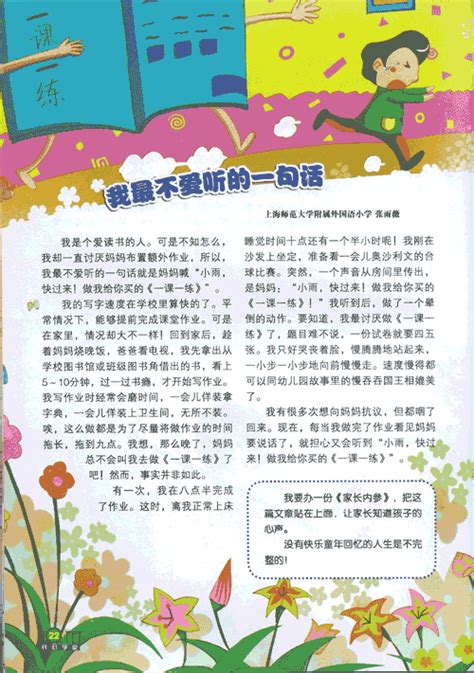 一课一练
我最不爱听的一句话
上海师范大学附属外国语小学 张雨薇
我是个爱读书的人。可是不知怎么，
我却一直讨厌妈妈布置额外作业，所以，
我最不爱听的一句话就是妈妈喊“小雨，
快过来！做我给你买的《一课一练》”。
我的写字速度在学校里算快的了。平
常情况下，能够提前完成课堂作业。可是
在家里，情况却大不一样！回到家后，趁
着妈妈烧晚饭，爸爸看电视，我先拿出从
学校图书馆或班级图书角借出的书，看上
5～10分钟，过一过书瘾，才开始写作业。
我写作业时经常会磨时间，一会儿佯装拿
字典，一会儿佯装上卫生间，无所不装。
唉，这么做都是为了尽量将做作业的时间
拖长，拖到九点。我想，那么晚了，妈妈
总不会叫我去做《一课一练》了
吧！然而，事实并非如此。
有一次，我在八点半完成
了作业。这时，离我正常上床
睡觉时间十点还有一个半小时呢！我刚在
沙发上坐定，准备看一会儿奥沙利文的台
球比赛。突然，一个声音从房间里传出，
是妈妈：“小雨，快过来！做我给你买的
《一课一练》！”我听到后，做了一个晕
倒的动作。要知道，我最讨厌做《一课一
练》了，题目难不说，一份试卷就要四五
张。我只好哭丧着脸，慢腾腾地站起来，
一小步一小步地向前慢慢走。速度慢得都
可以同幼儿园故事里的慢吞吞国王相媲美
了。
我有很多次想向妈妈抗议，但都咽了
回来。现在，每当我做完了作业看见妈妈
要说话了，就担心又会听到“小雨，快过
来！做我给你买的《一课一练》！”
我要办一份《家长内参》，把这
篇文章贴在上面，让家长知道孩子的
心声。
没有快乐童年回忆的人生是不完
整的！
22